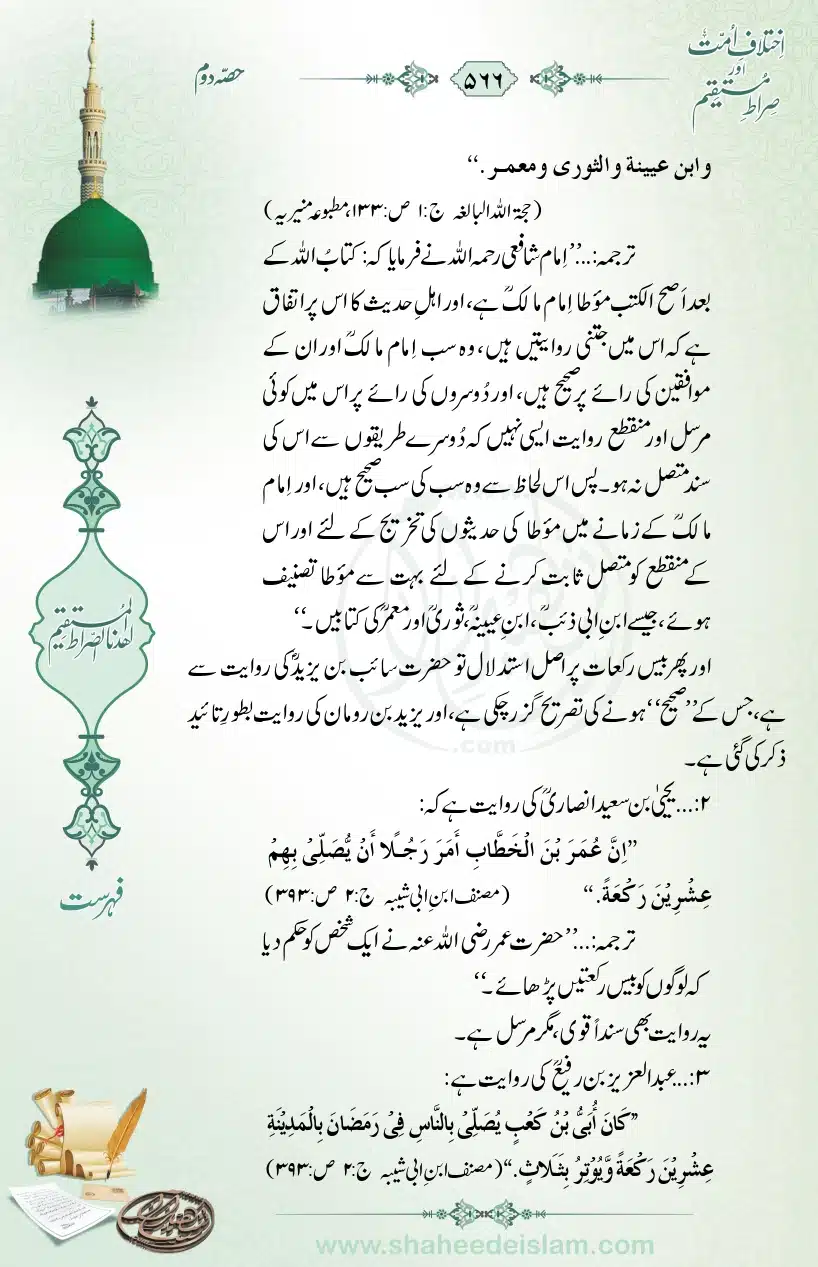 اِختلافِ اُمّت
اور
صِراطِ مُستقیم
۵۶۶
حصّہ دوم
وابن عیینة والثوری ومعمر.‘‘
(حجۃ اللہ البالغہ ج:۱ ص:۱۳۳، مطبوعہ منیریہ)
ترجمہ:...’’اِمام شافعی رحمہ اللہ نے فرمایا کہ: کتابُ اللہ کے
بعد اَصح الکتب مؤطا اِمام مالکؒ ہے، اور اہلِ حدیث کا اس پر اتفاق
ہے کہ اس میں جتنی روایتیں ہیں، وہ سب اِمام مالکؒ اور ان کے
موافقین کی رائے پر صحیح ہیں، اور دُوسروں کی رائے پر اس میں کوئی
مرسل اور منقطع روایت ایسی نہیں کہ دُوسرے طریقوں سے اس کی
سند متصل نہ ہو۔ پس اس لحاظ سے وہ سب کی سب صحیح ہیں، اور اِمام
مالکؒ کے زمانے میں مؤطا کی حدیثوں کی تخریج کے لئے اور اس
کے منقطع کو متصل ثابت کرنے کے لئے بہت سے مؤطا تصنیف
ہوئے، جیسے ابنِ ابی ذئبؒ، ابنِ عیینہؒ، ثوریؒ اور معمرؒ کی کتابیں۔‘‘
اور پھر بیس رکعات پر اصل استدلال تو حضرت سائب بن یزیدؓ کی روایت سے
ہے، جس کے ’’صحیح‘‘ ہونے کی تصریح گزر چکی ہے، اور یزید بن رومان کی روایت بطورِ تائید
ذکر کی گئی ہے۔
۲:...یحییٰ بن سعید انصاریؒ کی روایت ہے کہ:
’’اِنَّ عُمَرَ بْنَ الْخَطَّابِ أَمَرَ رَجُلًا أَنْ یُّصَلِّیْ بِھِمْ
عِشْرِیْنَ رَکْعَةً.‘‘ (مصنف ابنِ ابی شیبہ ج:۲ ص:۳۹۳)
ترجمہ:...’’حضرت عمر رضی اللہ عنہ نے ایک شخص کو حکم دیا
کہ لوگوں کو بیس رکعتیں پڑھائے۔‘‘
یہ روایت بھی سنداً قوی، مگر مرسل ہے۔
۳:...عبدالعزیز بن رفیعؒ کی روایت ہے:
’’کَانَ أُبَیُّ بْنُ کَعْبٍ یُصَلِّیْ بِالنَّاسِ فِیْ رَمَضَانَ بِالْمَدِیْنَةِ
عِشْرِیْنَ رَکْعَةً وَّیُوْتِرُ بِثَلَاثٍ.‘‘ (مصنف ابنِ ابی شیبہ ج:۲ ص:۳۹۳)
اھدنا الصّراط المُستقیم
فہرست
.com
www.shaheedeislam.com